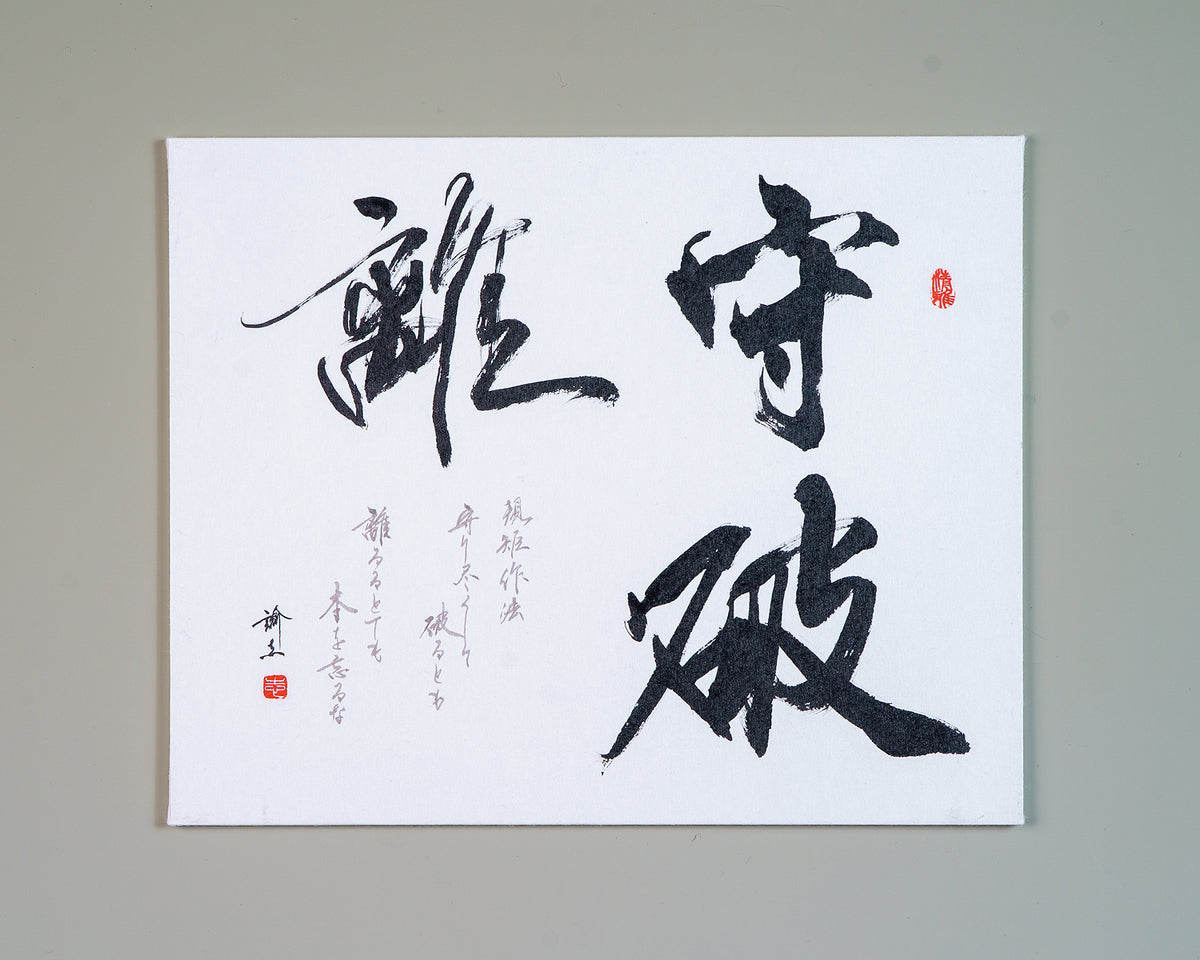 守
破
離
規矩作法
守り尽くして
破るとも
離るるとても
本を忘るな
諭志